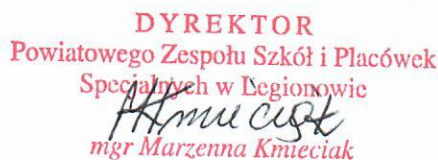 DYREKTOR
Powiatowego Zespołu Szkół i Placówek
Specjalnych w Legionowie
MKmieciak
mgr Marzenna Kmieciak